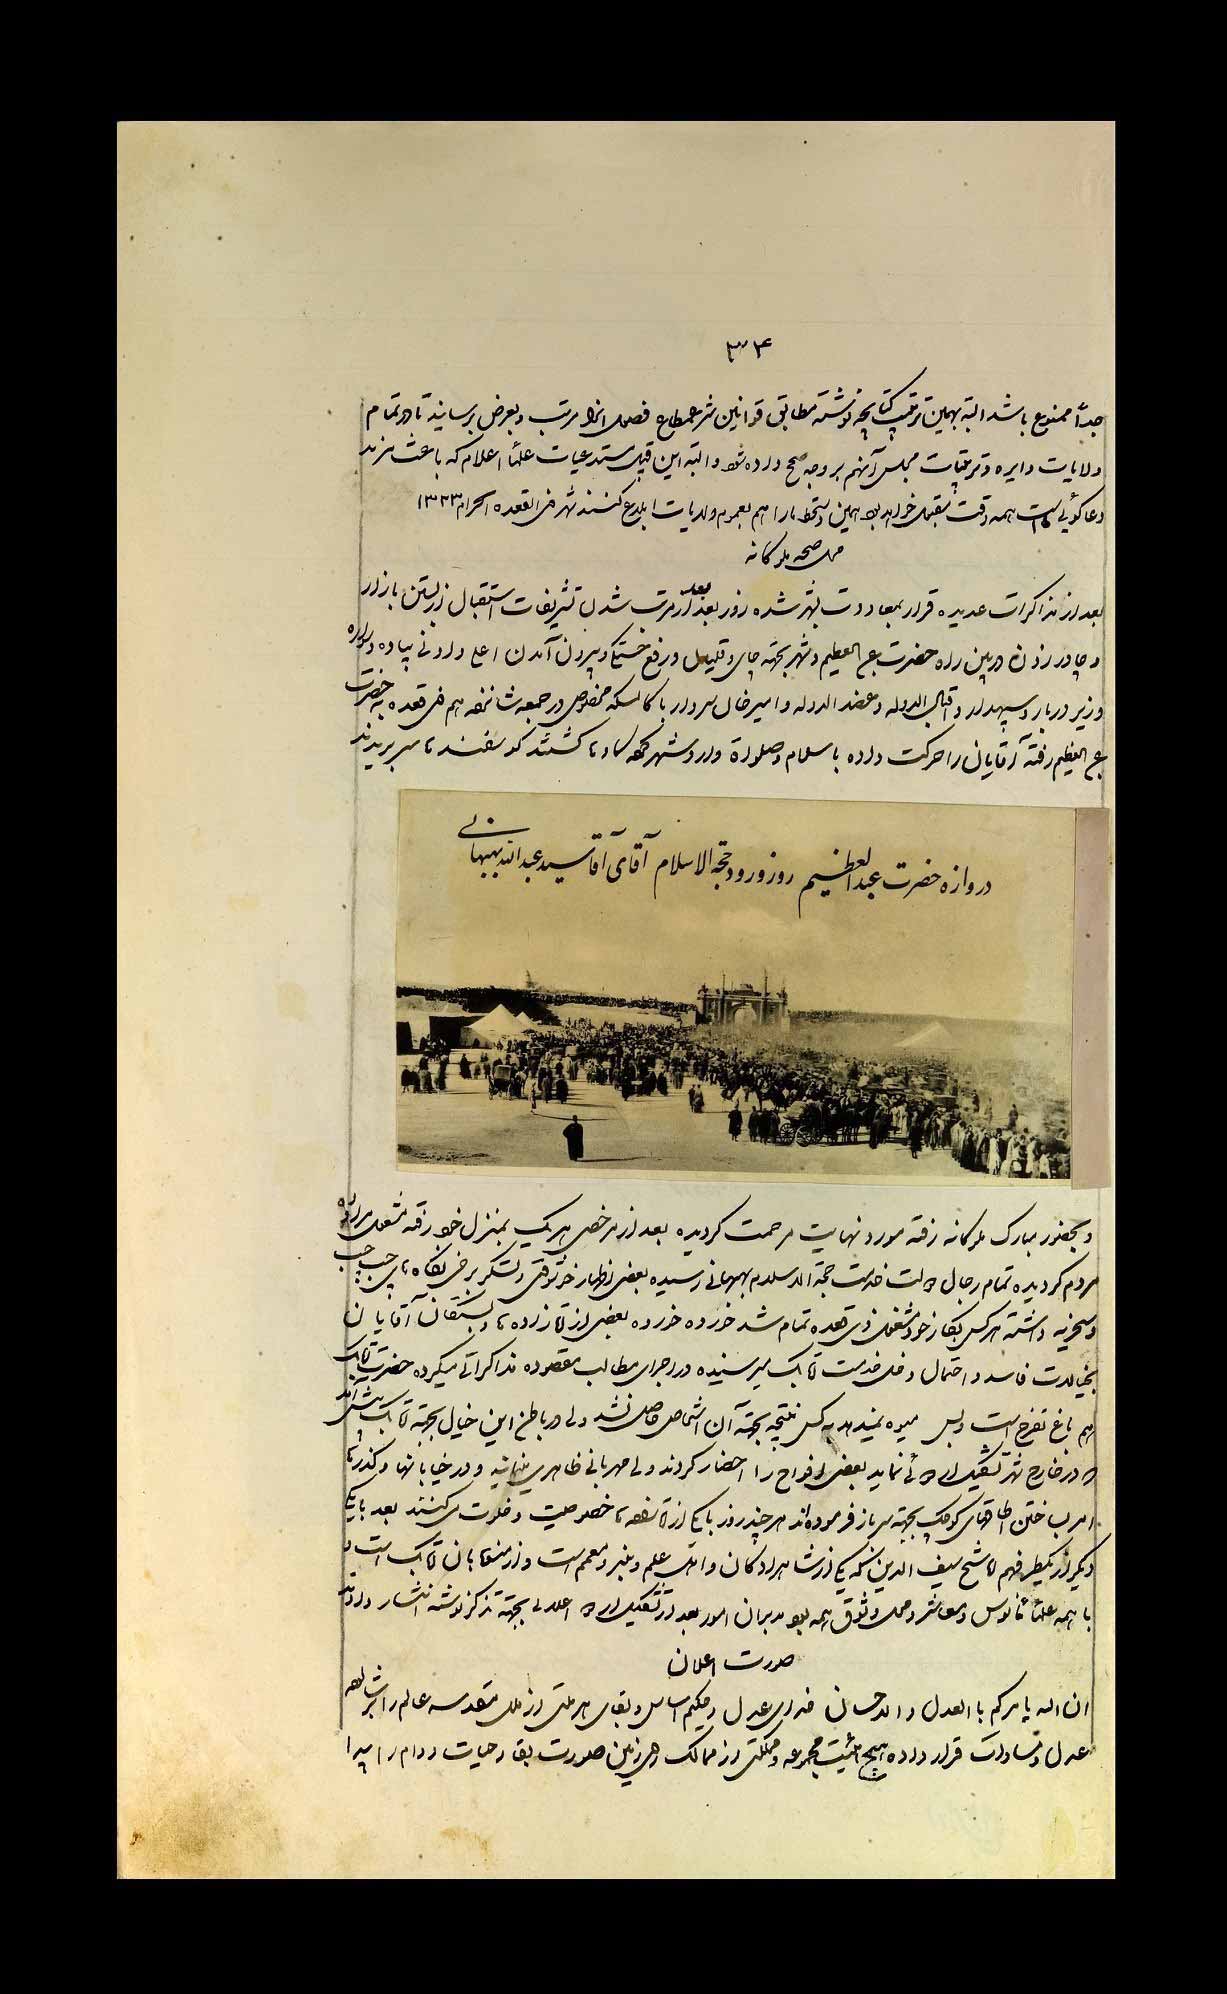 ۳۴
جداً ممنوع باشد البته بهمین ترتیب کتابچه نوشته مطابق قوانین شرع مطاع فصول آنرا مرتب و بعرض برسانید تا در تمام
ولایات دایره و ترتیبات مجلس آنهم بر وجه صحیح داده شود و البته این قبیل مستدعیات علماء اعلام که باعث مزید
دعاگوئی است همه وقت مقبول خواهد بود همین دستخط ما را هم بعموم ولایات ابلاغ کنند شهر ذی القعده الحرام ۱۳۲۳
محل صحه ملوکانه
بعد از مذاکرات عدیده قرار بمعاودت بشهر شده روز بعد بعد از مرتب شدن تشریفات استقبال از بستن بازار
و چادر زدن در بین راه حضرت عبدالعظیم و شهر بجهة چای و قلیان و رفع خستگی و بیرون آمدن اعلی و ادنی پیاده و سواره
وزیر دربار و سپهدار و اقبال الدوله و عضد الدوله و امیرخان سردار با کالسکه مخصوص در جمعه شانزدهم ذی قعده به حضرت
عبدالعظیم رفته آقایان را حرکت داده با سلام و صلوات وارد شهر گشتند گوسفندها سر بریدند
دروازه حضرت عبدالعظیم روز ورود حجة الاسلام آقای آقا سید عبدالله بهبهانی
و بحضور مبارک ملوکانه رفته مورد نهایت مرحمت گردیده بعد از مرخصی هر یک بمنزل خود رفته مشغول مراوده
مردم گردیده تمام رجال دولت خدمت حجة الاسلام بهبهانی رسیده بعضی اظهار خوشوقتی و تشکر برخی نگاه های چپ چپ
و سخریه داشته هر کس بکار خود مشغول ذی قعده تمام شد خورده خورده بعضی از آقازاده ها و بستگان آقایان
بخیالات فاسد و احتمال دخل خدمت اتابک میرسیده در اجرای مطالب مقصوده مذاکراتی میکرده حضرت اتابک
هم باغ تفرج است و بس میوه نمیدهد به کس نتیجه بجهة آن اشخاص حاصل نشد ولی در باطن این خیال بجهة اتابک پیش آمد
که در خارج شهر تشکیل اردوئی نماید بعضی افواج را احضار کردند ولی مهربانی ظاهری مینمایند و در خیابانها و گذرها
امر بساختن اطاقهای کوچک بجهة سرباز فرموده اند هر چند روز با یکی از خصوصیت و خلوت می کنند بعد با یکی
دیگر از یکطرف هم شیخ سیف الدین که یکی از شاهزادگان و اهل علم و منبر و معمم است و از اتابک است و
با همه علما مأنوس و معاشر و محل وثوق همه بود مدیران امور بعد از تشکیل اردو اعلانی بجهة تذکر نوشته انتشار دادند
صورت اعلان
ان الله یأمرکم بالعدل و الاحسان خدای عدل و حکیم اساس و بقای هر ملتی از ملل مقدسه عالم را
عدل و مساوات قرار داده هیچ هیئت مجموعه و مملکتی از ممالک روی زمین صورت بقا و حیات و دوام را پیدا